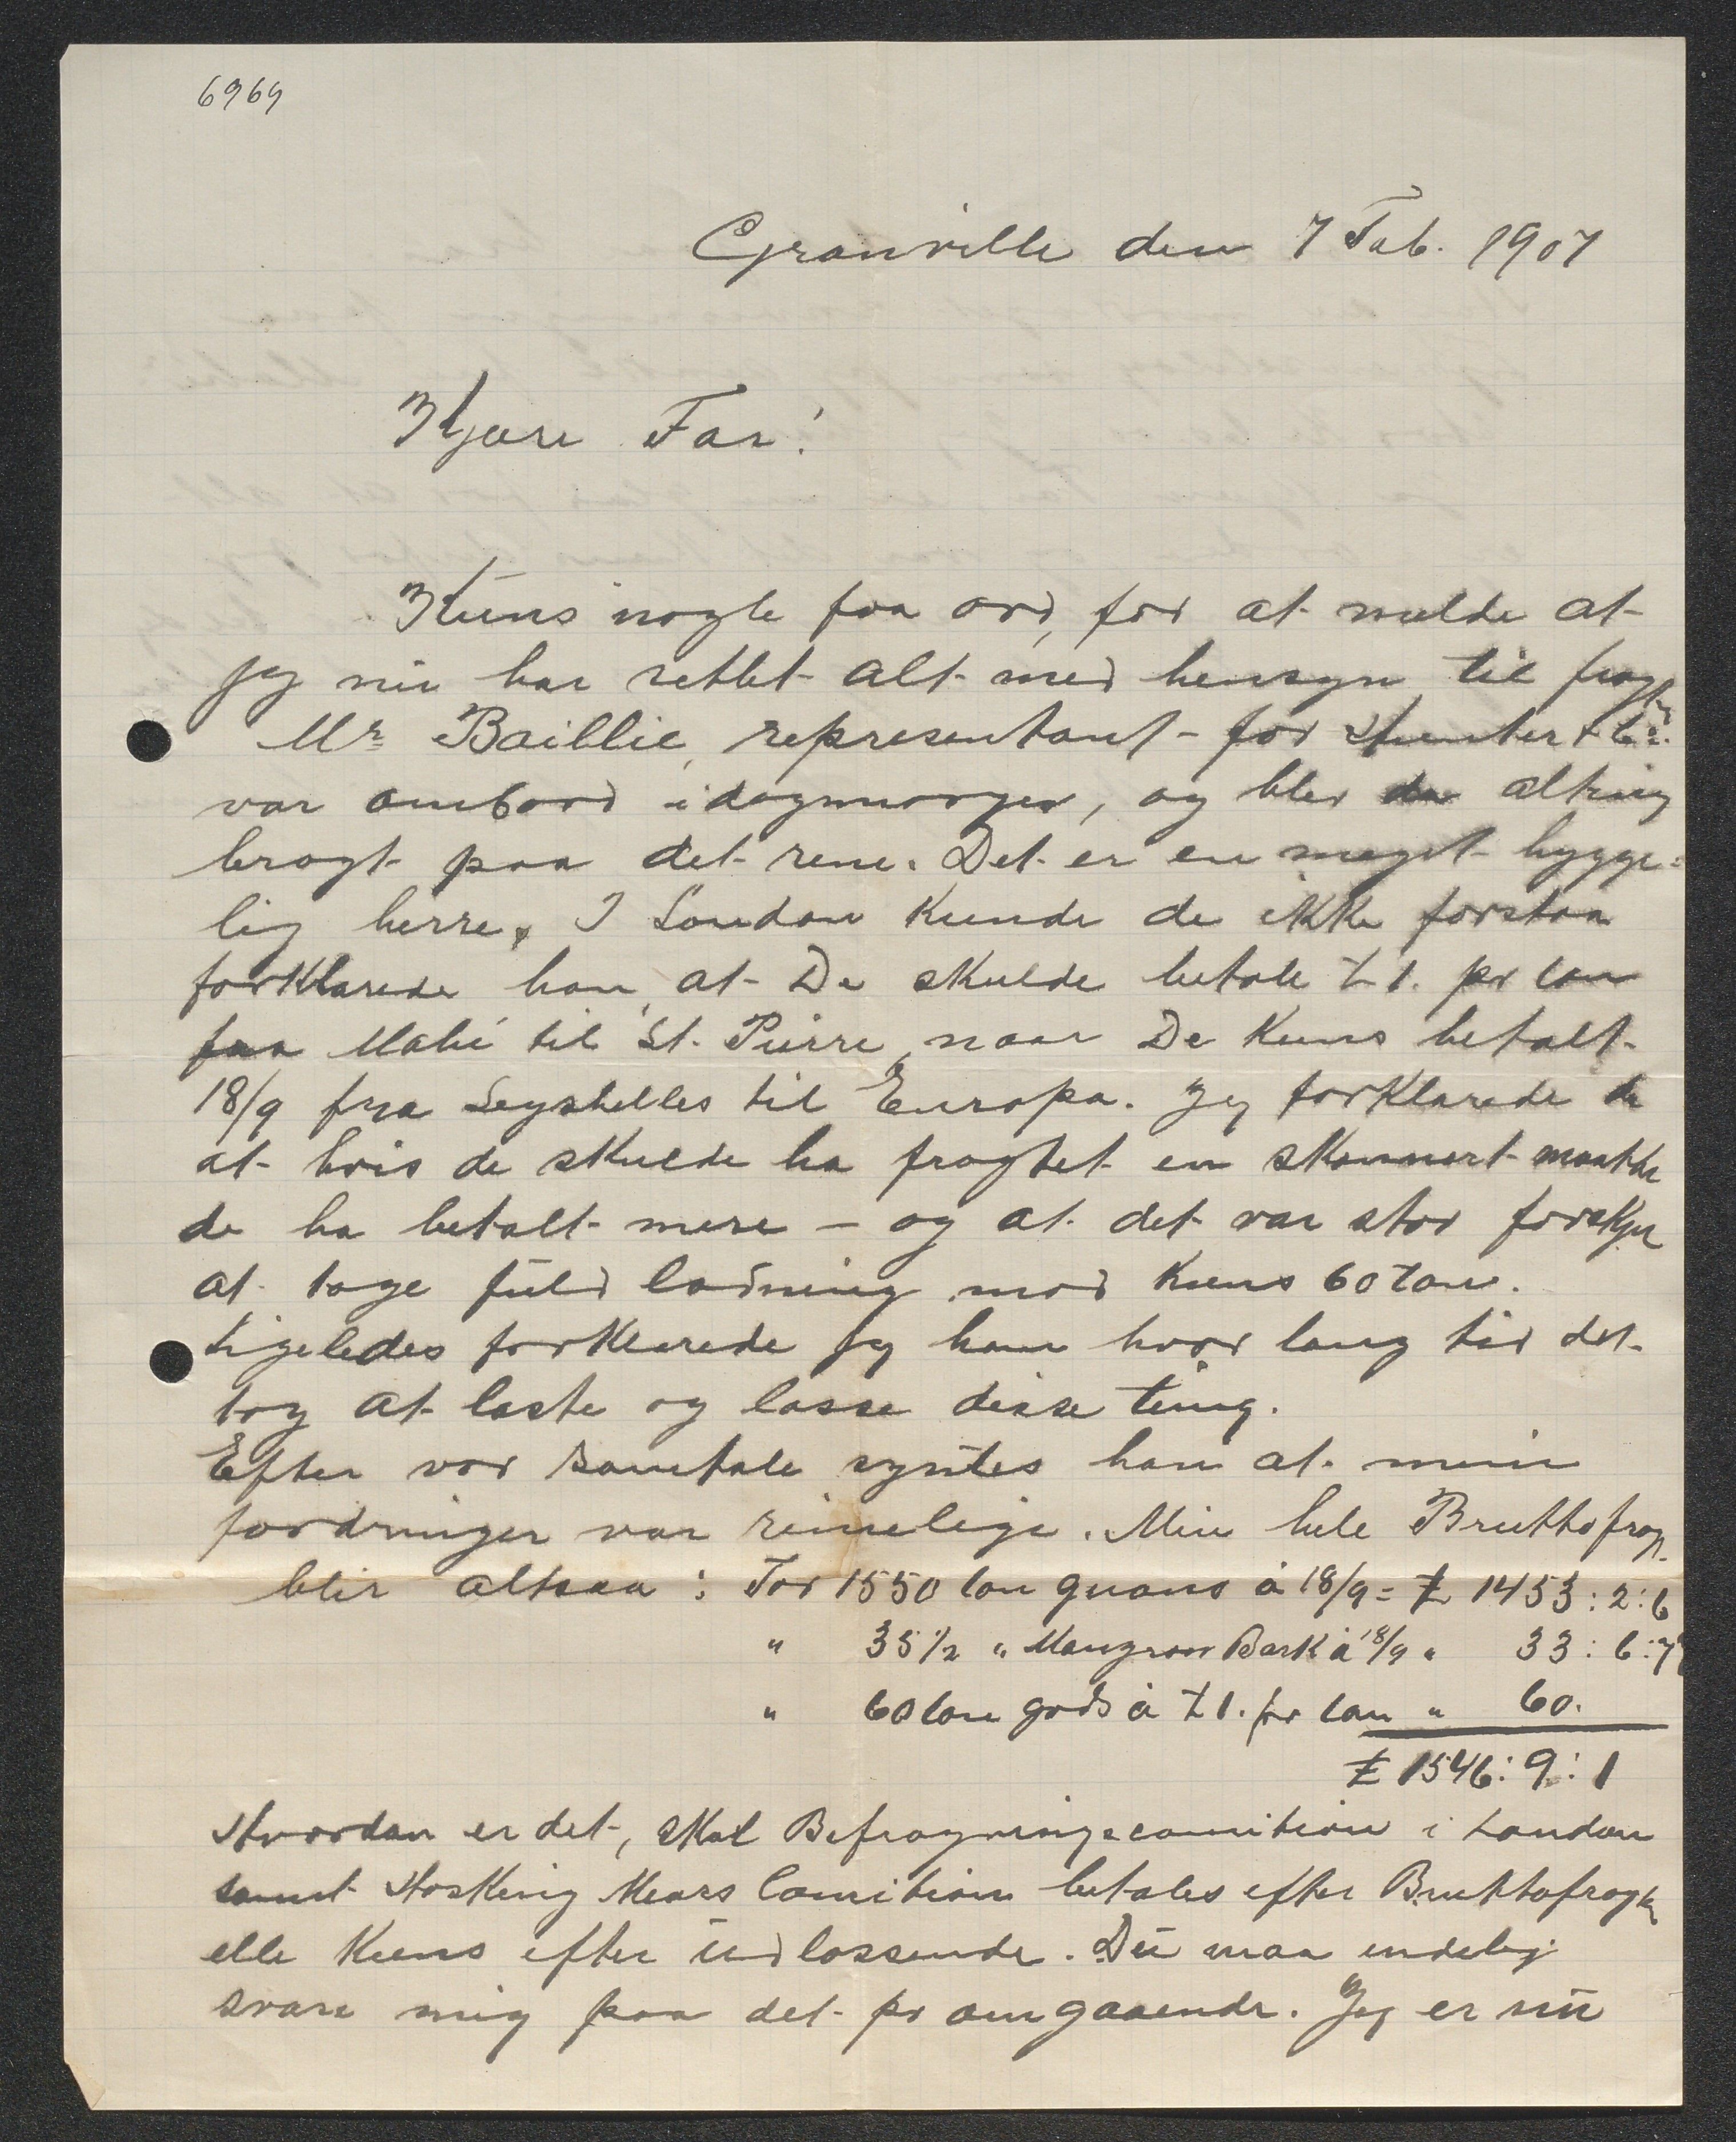 6969
Granville den 7 Feb. 1907
Kjære Far!
Kuns nogle faa ord, for at melde at
jeg nu har settlet alt med hensyn til fragten
Mr Baillie, representant for Hunter & Co.
var ombord idagmorges, og blev da alting
bragt paa det rene. Det er en meget hygge=
lig herre. I London kunde de ikke forstaa
forklarede han, at De skulde betale £ 1. pr ton
fra Mahé til St. Pierre, naar De kuns betalt
18/9 fra Seyshelles til Europa. Jeg forklarede da
at hvis de skulde ha fragtet en skonnert maatte
de ha betalt mere – og at det var stor forskjel
at tage fuld ladning mod kuns 60 tons.
Ligeledes forklarede jeg ham hvor lang tid det
tog at laste og losse disse ting.
Efter vor samtale syntes han at mine
fordringer var rimelige. Min hele Bruttofragt
blir altsaa: For 1550 ton guano à 18/9 = £ 1453:2:6
" 35 1/2 " Mangrove Bark à 18/9 " 33:6:7
" 60 ton gods à £ 1. pr ton " 60.
£ 1546:9:1
Hvordan er det, skal Befragningscomition i London
samt Hosking Mears Comition betales efter Bruttofragten
elle kuns efter udlossende. Du maa endelig
svare mig paa det pr omgaaende. Jeg er nu